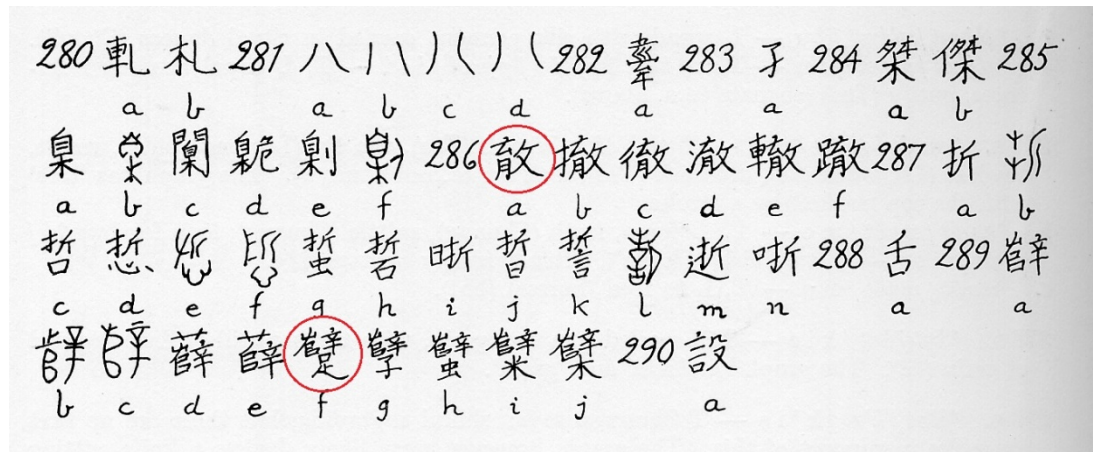 280 軋 札 281 八 282 舝 283 孑 284 桀 傑 285
a b a b c d a a a b
臬 闑 臲 㓷 286 撤 徹 澈 轍 287 折
a b c d e f a b c d e f a b
哲 悊 蜇 硩 晣 晢 誓 逝 哳 288 舌 289 辥
c d e f g h i j k l m n a a
薛 孼 蠥 糱 櫱 290 設
b c d e f g h i j a